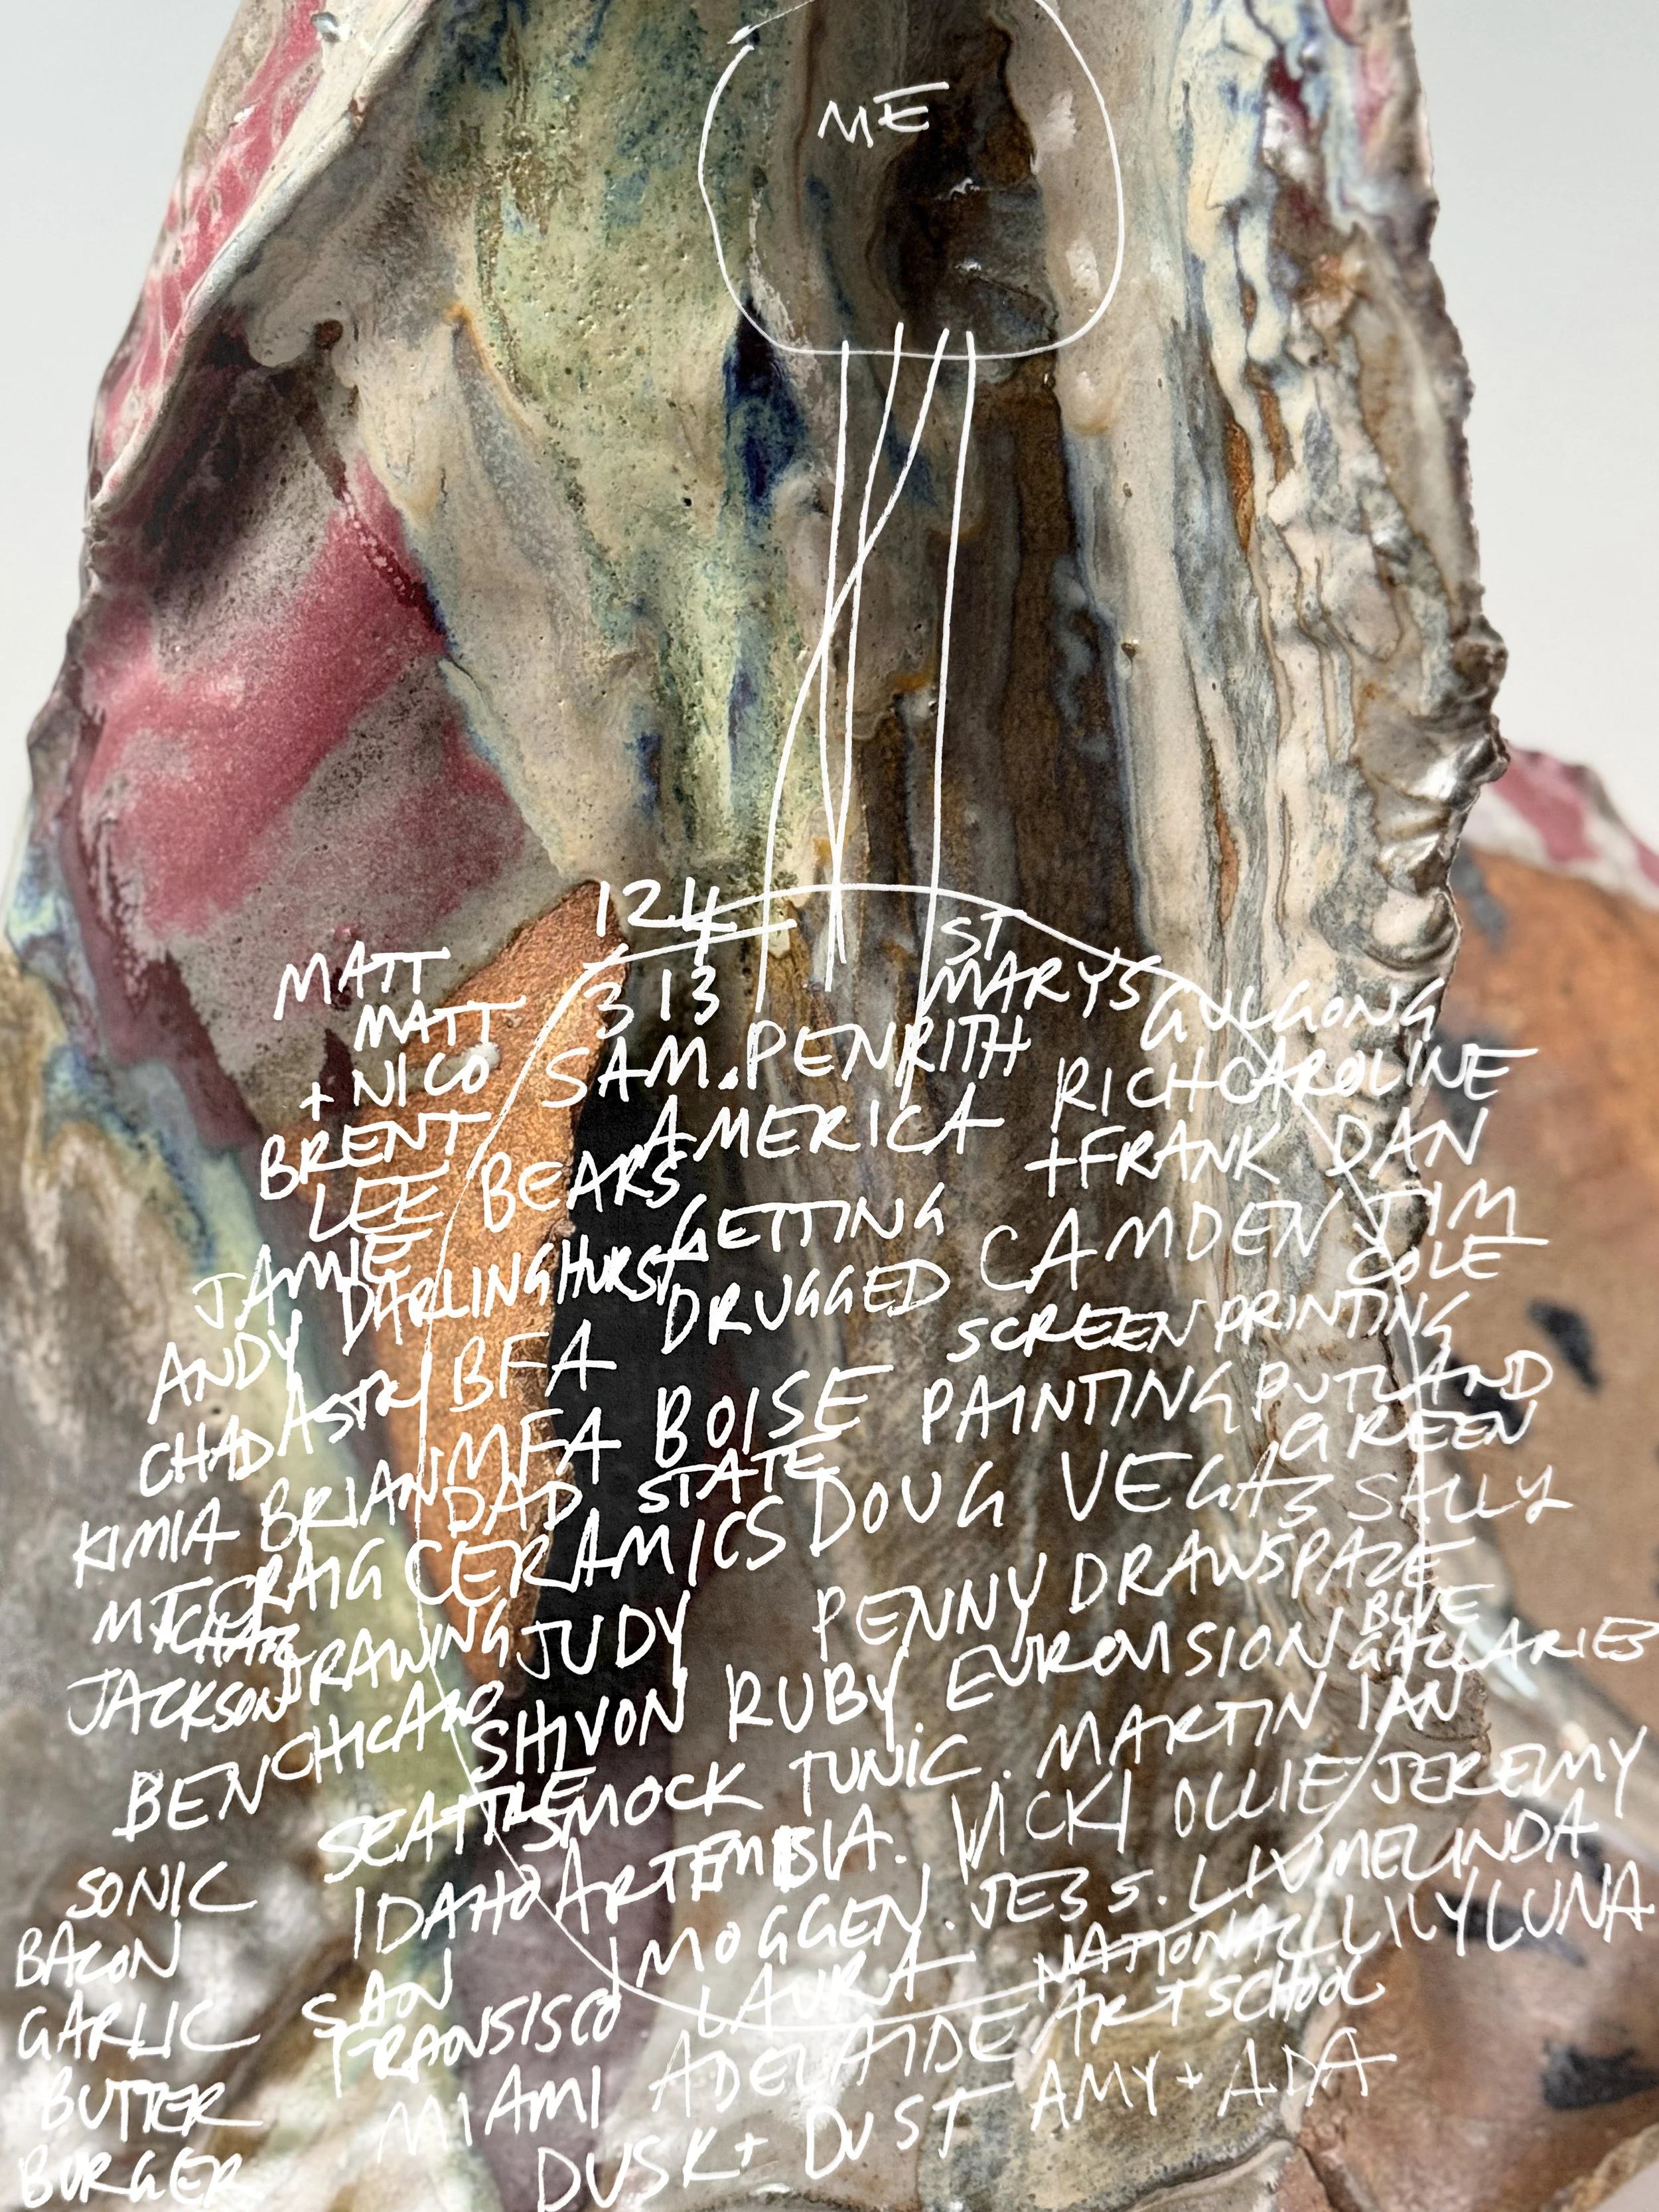 ME
124
313
ST
MARYS GULGONG
MATT
MATT
+ NICO
SAM. PENRITH
RICH CAROLINE
BRENT
AMERICA
+ FRANK DAN
LEE BEARS
GETTING
CAMDEN TIM
COLE
JAMIE DARLINGHURST
DRUGGED
SCREEN PRINTING
ANDY
BFA
CHAD ASTRI
MFA BOISE PAINTING RUTLAND
STATE
GREEN
KIMIA BRIAN DAD
DOUG VEGAS SALLY
CRAIG CERAMICS
PENNY DRAWSPACE
JACKSON DRAWING JUDY
BLUE
BEN CHICAGO
SHIVON RUBY EUROVISION GALLARIES
SEATTLE
SMOCK TUNIC. MARTIN IAN
IDAHO ARTEMISIA. VICKI OLLIE JEREMY
SONIC
BACON
GARLIC
BUTTER
BURGER
IMOGGEN. JESS. LIV MELINDA
SAN
FRANSISCO
LAURA
NATIONAL LILY LUNA
ART SCHOOL
MIAMI ADELAIDE
DUSK + DUST AMY + ADA